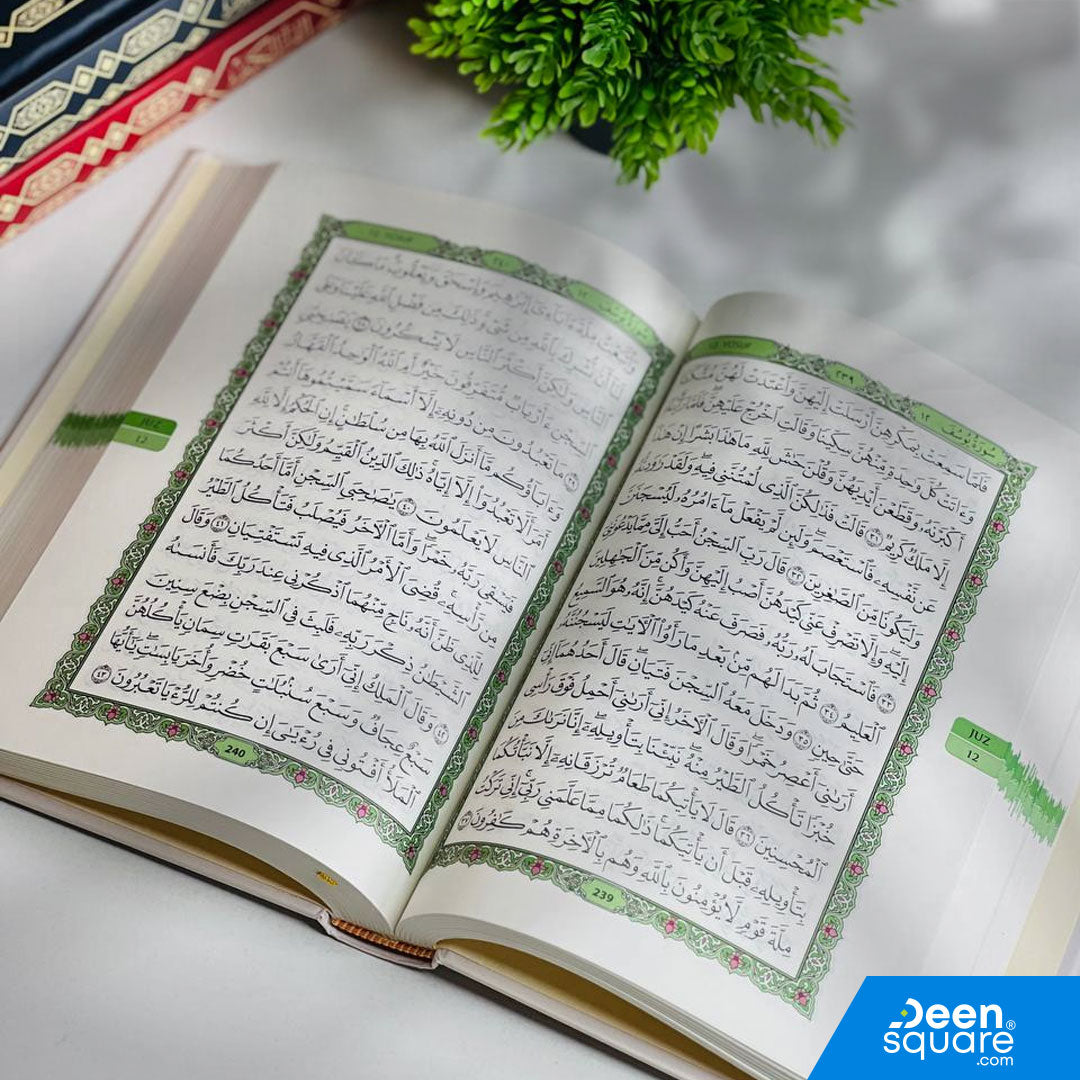 12 YUSUF
٢٣٩
١٢
سُورَةُ يُوسُفَ
فَلَمَّا سَمِعَتْ بِمَكْرِهِنَّ أَرْسَلَتْ إِلَيْهِنَّ وَأَعْتَدَتْ لَهُنَّ مُتَّكَـًٔا
وَءَاتَتْ كُلَّ وَٰحِدَةٍ مِّنْهُنَّ سِكِّينًا وَقَالَتِ ٱخْرُجْ عَلَيْهِنَّ ۖ فَلَمَّا رَأَيْنَهُۥٓ
أَكْبَرْنَهُۥ وَقَطَّعْنَ أَيْدِيَهُنَّ وَقُلْنَ حَٰشَ لِلَّهِ مَا هَٰذَا بَشَرًا إِنْ هَٰذَآ
إِلَّا مَلَكٌ كَرِيمٌ ٣١ قَالَتْ فَذَٰلِكُنَّ ٱلَّذِى لُمْتُنَّنِى فِيهِ ۖ وَلَقَدْ رَٰوَدتُّهُۥ
عَن نَّفْسِهِۦ فَٱسْتَعْصَمَ ۖ وَلَئِن لَّمْ يَفْعَلْ مَآ ءَامُرُهُۥ لَيُسْجَنَنَّ
وَلَيَكُونًا مِّنَ ٱلصَّٰغِرِينَ ٣٢ قَالَ رَبِّ ٱلسِّجْنُ أَحَبُّ إِلَىَّ مِمَّا يَدْعُونَنِىٓ
إِلَيْهِ ۖ وَإِلَّا تَصْرِفْ عَنِّى كَيْدَهُنَّ أَصْبُ إِلَيْهِنَّ وَأَكُن مِّنَ ٱلْجَٰهِلِينَ
٣٣ فَٱسْتَجَابَ لَهُۥ رَبُّهُۥ فَصَرَفَ عَنْهُ كَيْدَهُنَّ ۚ إِنَّهُۥ هُوَ ٱلسَّمِيعُ
ٱلْعَلِيمُ ٣٤ ثُمَّ بَدَا لَهُم مِّنۢ بَعْدِ مَا رَأَوُا۟ ٱلْءَايَٰتِ لَيَسْجُنُنَّهُۥ
حَتَّىٰ حِينٍ ٣٥ وَدَخَلَ مَعَهُ ٱلسِّجْنَ فَتَيَانِ ۖ قَالَ أَحَدُهُمَآ إِنِّىٓ
أَرَىٰنِىٓ أَعْصِرُ خَمْرًا ۖ وَقَالَ ٱلْءَاخَرُ إِنِّىٓ أَرَىٰنِىٓ أَحْمِلُ فَوْقَ رَأْسِى
خُبْزًا تَأْكُلُ ٱلطَّيْرُ مِنْهُ ۖ نَبِّئْنَا بِتَأْوِيلِهِۦٓ ۖ إِنَّا نَرَىٰكَ مِنَ
ٱلْمُحْسِنِينَ ٣٦ قَالَ لَا يَأْتِيكُمَا طَعَامٌ تُرْزَقَانِهِۦٓ إِلَّا نَبَّأْتُكُمَا
بِتَأْوِيلِهِۦ قَبْلَ أَن يَأْتِيَكُمَا ۚ ذَٰلِكُمَا مِمَّا عَلَّمَنِى رَبِّىٓ ۚ إِنِّى تَرَكْتُ
مِلَّةَ قَوْمٍ لَّا يُؤْمِنُونَ بِٱللَّهِ وَهُم بِٱلْءَاخِرَةِ هُمْ كَٰفِرُونَ ٣٧
239
JUZ
12
12 YUSUF
٢٤٠
١٢
سُورَةُ يُوسُفَ
وَٱتَّبَعْتُ مِلَّةَ ءَابَآءِىٓ إِبْرَٰهِيمَ وَإِسْحَٰقَ وَيَعْقُوبَ ۚ مَا كَانَ
لَنَآ أَن نُّشْرِكَ بِٱللَّهِ مِن شَىْءٍ ۚ ذَٰلِكَ مِن فَضْلِ ٱللَّهِ عَلَيْنَا وَعَلَى
ٱلنَّاسِ وَلَٰكِنَّ أَكْثَرَ ٱلنَّاسِ لَا يَشْكُرُونَ ٣٨ يَٰصَىٰحِبَىِ
ٱلسِّجْنِ ءَأَرْبَابٌ مُّتَفَرِّقُونَ خَيْرٌ أَمِ ٱللَّهُ ٱلْوَٰحِدُ ٱلْقَهَّارُ
٣٩ مَا تَعْبُدُونَ مِن دُونِهِۦٓ إِلَّآ أَسْمَآءً سَمَّيْتُمُوهَآ أَنتُمْ
وَءَابَآؤُكُم مَّآ أَنزَلَ ٱللَّهُ بِهَا مِن سُلْطَٰنٍ ۚ إِنِ ٱلْحُكْمُ إِلَّا لِلَّهِ ۚ
أَمَرَ أَلَّا تَعْبُدُوٓا۟ إِلَّآ إِيَّاهُ ۚ ذَٰلِكَ ٱلدِّينُ ٱلْقَيِّمُ وَلَٰكِنَّ أَكْثَرَ
ٱلنَّاسِ لَا يَعْلَمُونَ ٤٠ يَٰصَىٰحِبَىِ ٱلسِّجْنِ أَمَّآ أَحَدُكُمَا
فَيَسْقِى رَبَّهُۥ خَمْرًا ۖ وَأَمَّا ٱلْءَاخَرُ فَيُصْلَبُ فَتَأْكُلُ ٱلطَّيْرُ
مِن رَّأْسِهِۦ ۚ قُضِىَ ٱلْأَمْرُ ٱلَّذِى فِيهِ تَسْتَفْتِيَانِ ٤١ وَقَالَ
لِلَّذِى ظَنَّ أَنَّهُۥ نَاجٍ مِّنْهُمَا ٱذْكُرْنِى عِندَ رَبِّكَ فَأَنسَىٰهُ
ٱلشَّيْطَٰنُ ذِكْرَ رَبِّهِۦ فَلَبِثَ فِى ٱلسِّجْنِ بِضْعَ سِنِينَ
٤٢ وَقَالَ ٱلْمَلِكُ إِنِّىٓ أَرَىٰ سَبْعَ بَقَرَٰتٍ سِمَانٍ يَأْكُلُهُنَّ
سَبْعٌ عِجَافٌ وَسَبْعَ سُنۢبُلَٰتٍ خُضْرٍ وَأُخَرَ يَابِسَٰتٍ ۖ يَٰٓأَيُّهَا
ٱلْمَلَأُ أَفْتُونِى فِى رُءْيَٰىَ إِن كُنتُمْ لِلرُّءْيَا تَعْبُرُونَ ٤٣
240
JUZ
12
Deen
square®
.com